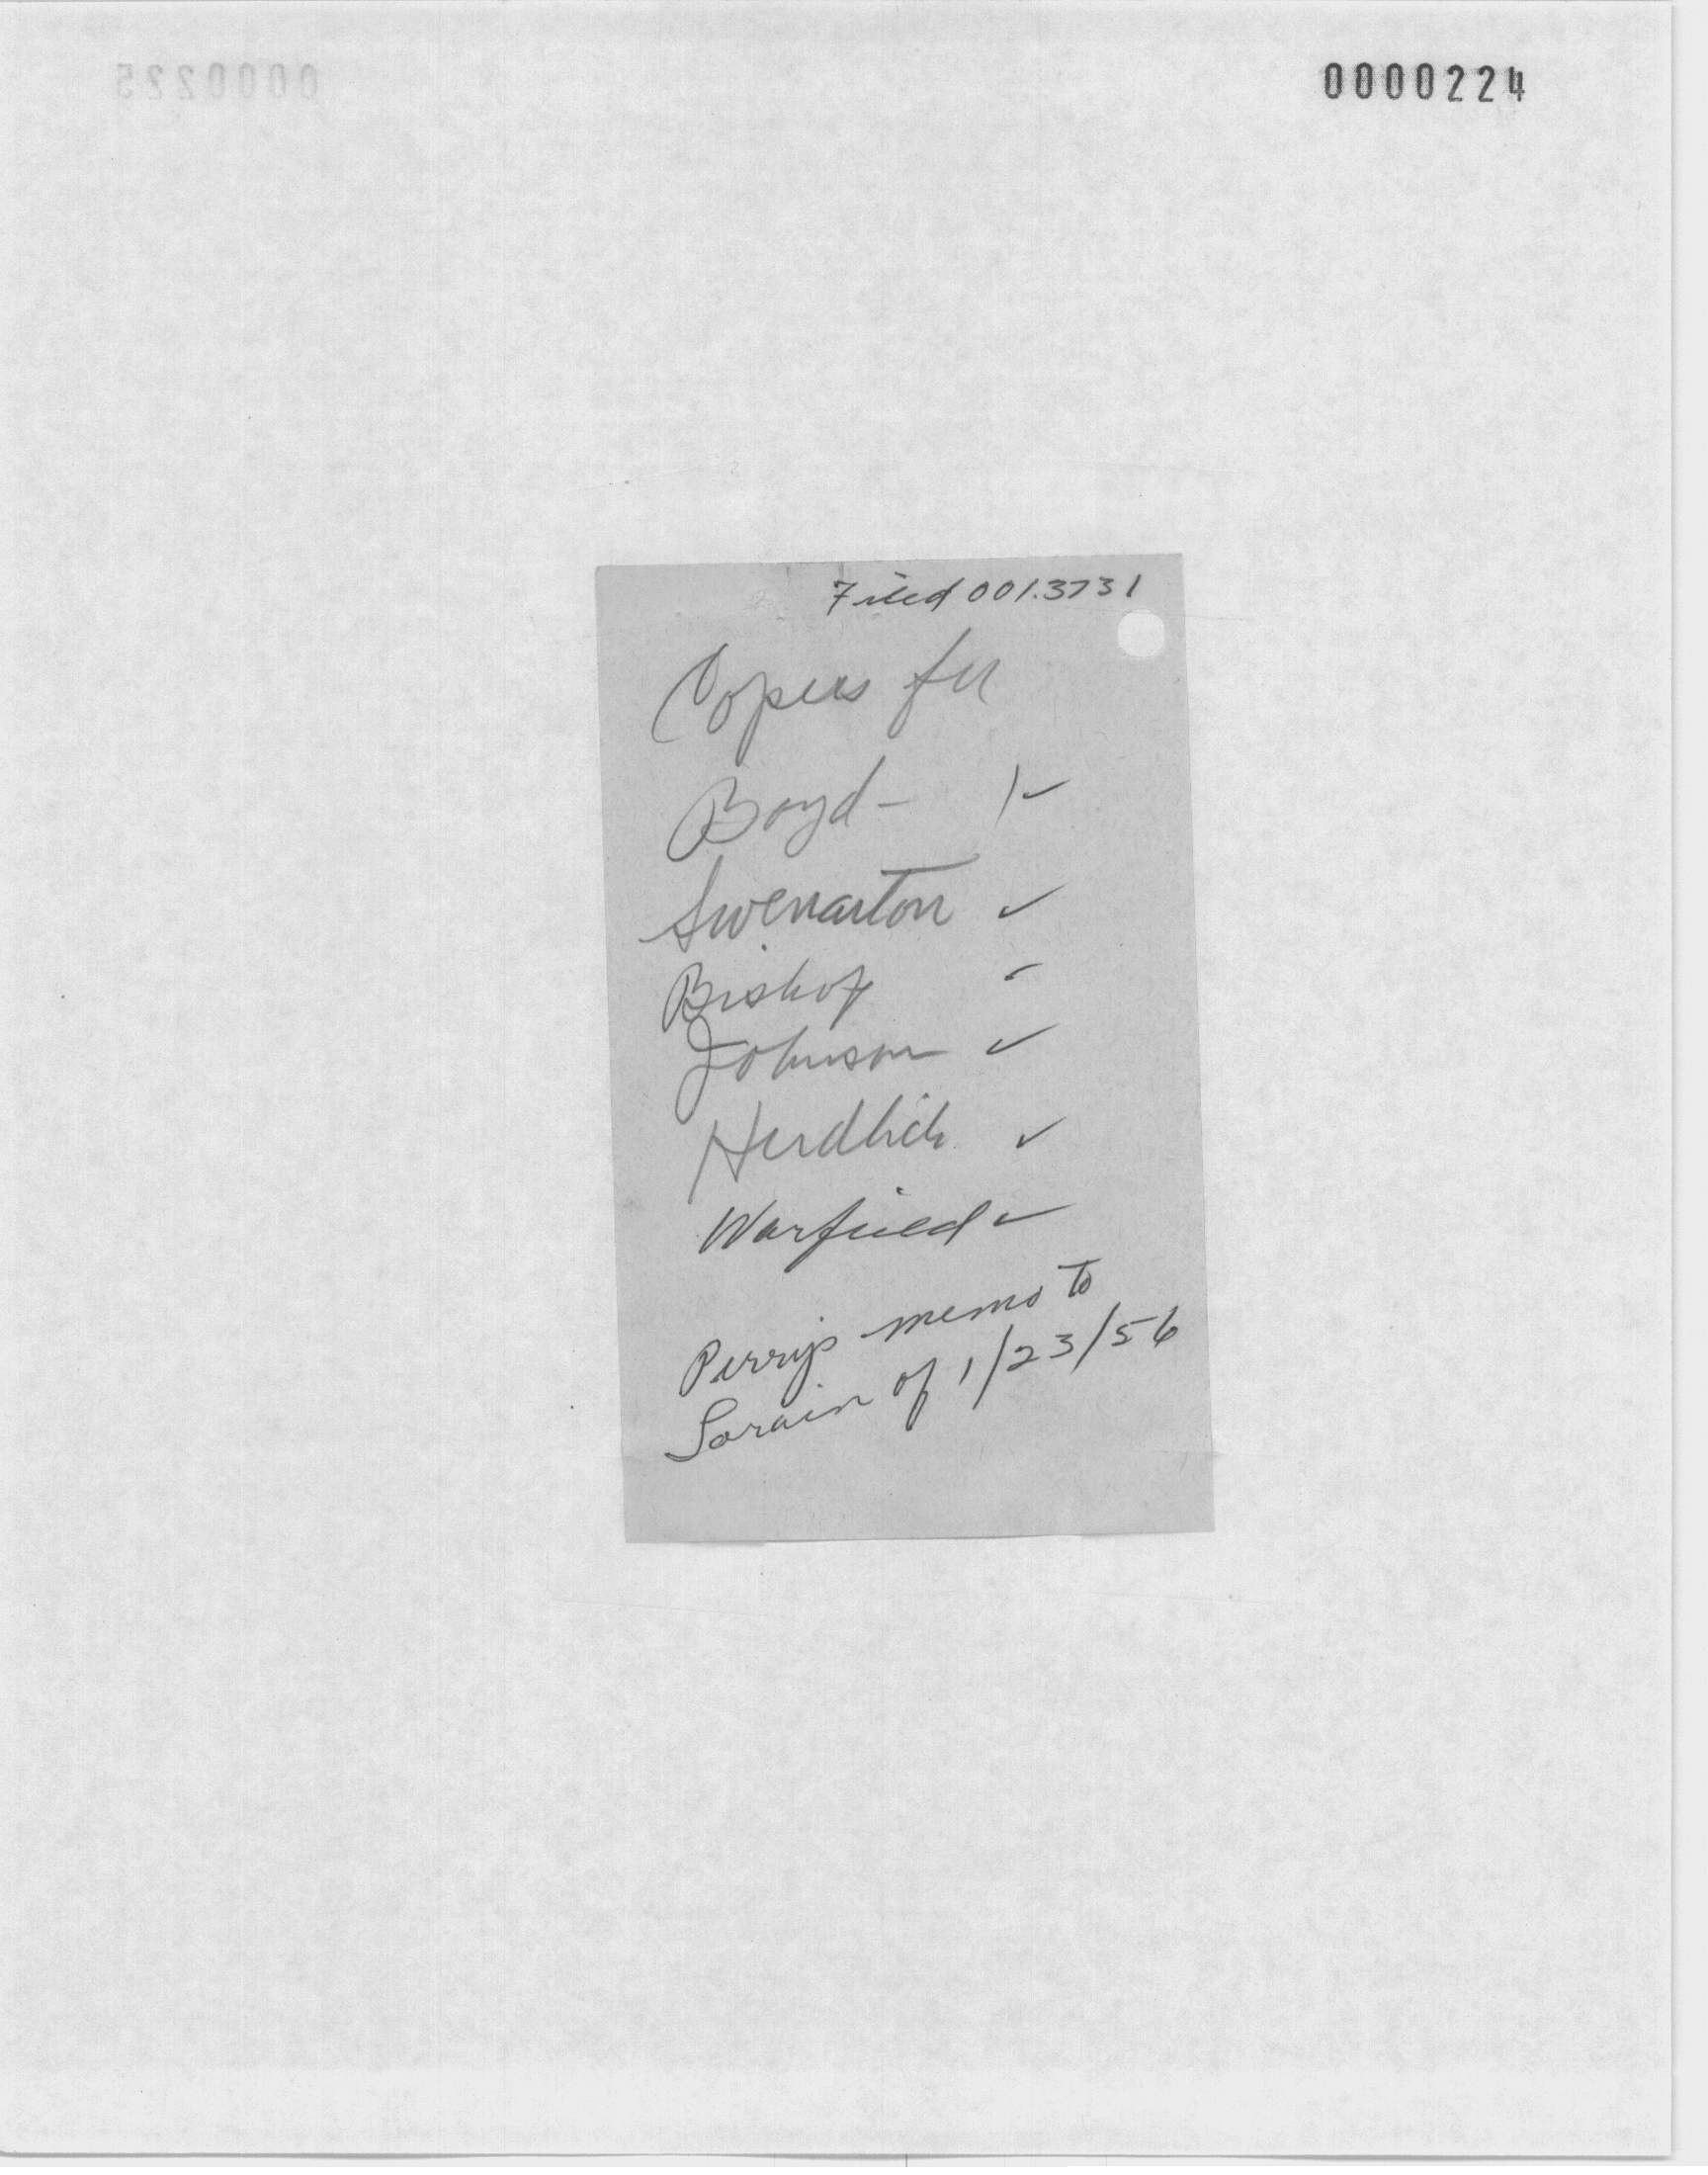 0000224
Filed 001.3731
Copies for
Boyd - 1 ✓
Swenarton ✓
Bishop ✓
Johnson ✓
Herdlich ✓
Warfield ✓
Perry's memo to
Lorain of 1/23/56